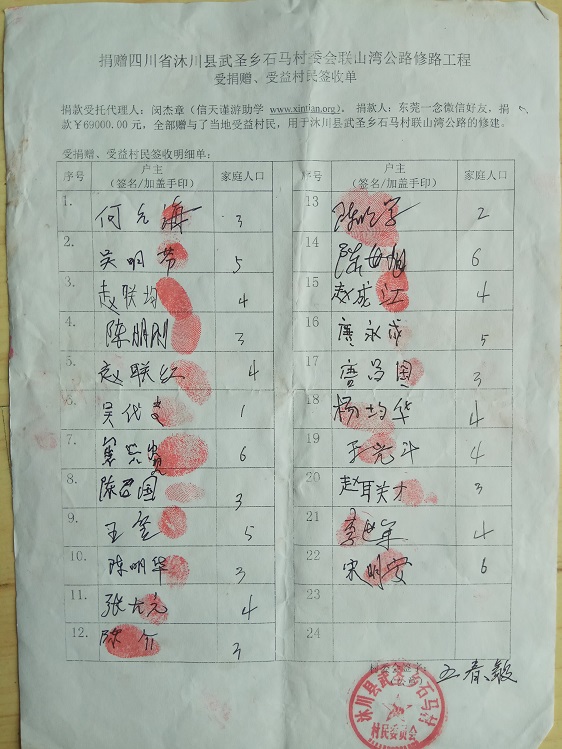 捐赠四川省沐川县武圣乡石马村委会联山湾公路修路工程
受捐赠、受益村民签收单
捐款受托代理人：闵杰章（信天谨游助学 www.xintian.org)。 捐款人：东莞一念微信好友，捐
款￥69000.00 元，全部赠与了当地受益村民，用于沐川县武圣乡石马村联山湾公路的修建。
受捐赠、受益村民签收明细单：
序号 户主 家庭人口 序号 户主 家庭人口
（签名/加盖手印） （签名/加盖手印）
1. 何元海 3 13 2
2. 吴明芳 5 14 6
3. 赵联均 4 15 赵成江 4
4. 陈朋刚 3 16 唐永成 5
5. 赵联红 4 17 唐昌国 3
6. 吴代 1 18 杨均华 4
7. 6 19 王光斗 4
8. 陈君国 3 20 赵联才 3
9. 王 5 21 李 军 4
10. 陈明华 3 22 宋明安 6
11. 张大元 4 23
12. 陈介 3 24
王春毅
沐川县武圣乡石马村
村民委员会